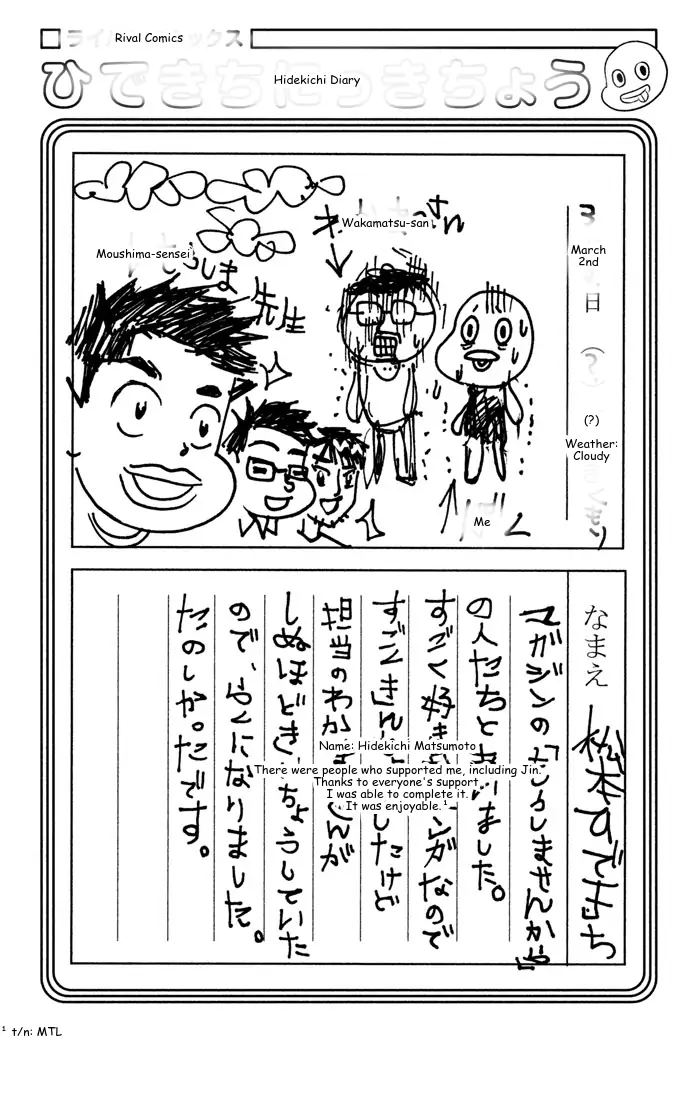 Rival Comics
Hidekichi Diary
Wakamatsu-san
Moushima-sensei
先生
March
2nd
日
(?)
Weather:
Cloudy
Me
なまえ 松本ひできち
マガジンの「
の人たちと
ました。
すごく好き
ンガなので
すごくきん
したけど
担当のわか
さんが
しぬほどき
ちょうしていた
ので、らくになりました。
たのしかったです。
Name: Hidekichi Matsumoto
There were people who supported me, including Jin.
Thanks to everyone's support,
I was able to complete it.
It was enjoyable.¹
¹ t/n: MTL